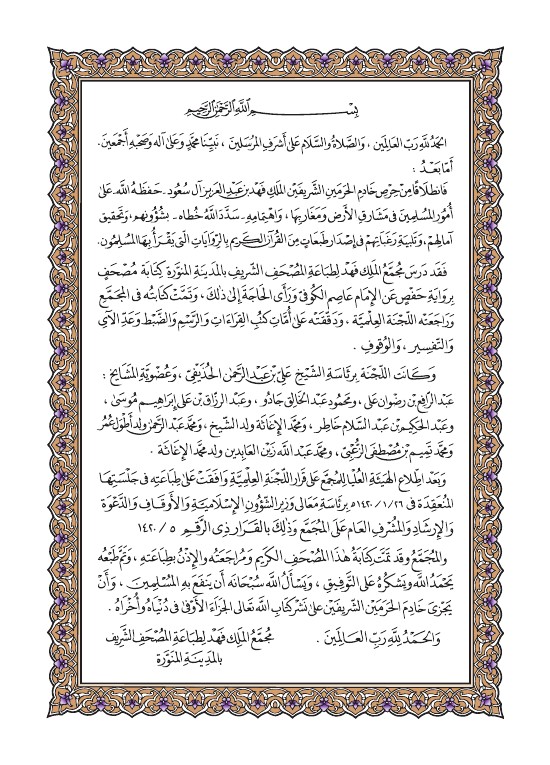 بِسْمِ اللَّهِ الرَّحْمَٰنِ الرَّحِيمِ
الحَمْدُ لِلَّهِ رَبِّ العَالَمِينَ، وَالصَّلَاةُ وَالسَّلَامُ عَلَىٰ أَشْرَفِ المُرْسَلِينَ، نَبِيِّنَا مُحَمَّدٍ وَعَلَىٰ آلِهِ وَصَحْبِهِ أَجْمَعِينَ.
أَمَّا بَعْدُ:
فَانطِلَاقًا مِنْ حِرْصِ خَادِمِ الحَرَمَيْنِ الشَّرِيفَيْنِ المَلِكِ فَهْد بن عَبدِ العَزِيز آل سُعُود ـ حَفِظَهُ اللَّهُ ـ عَلَىٰ
أُمُورِ المُسْلِمِينَ فِي مَشَارِقِ الأَرْضِ وَمَغَارِبِهَا، وَاهْتِمَامِهِ ـ سَدَّدَ اللَّهُ خُطَاه ـ بِشُؤُونِهِم، وَتَحْقِيقِ
آمَالِهِمْ، وَتَلْبِيَةِ رَغَبَاتِهِمْ فِي إِصْدَارِ طَبَعَاتٍ مِنَ القُرْآنِ الكَرِيمِ بِالرِّوَايَاتِ الَّتِي يَقْرَأُ بِهَا المُسْلِمُونَ.
فَقَد دَرَسَ مُجَمَّعُ المَلِك فَهْد لِطِبَاعَةِ المُصْحَفِ الشَّرِيفِ بِالمَدِينَةِ المُنَوَّرَةِ كِتَابَةَ مُصْحَفٍ
بِرِوَايَةِ حَفْصٍ عَنِ الإِمَامِ عَاصِمٍ الكُوفِيّ وَرَأَى الحَاجَةَ إِلَىٰ ذٰلِكَ، وَتَمَّتْ كِتَابَتُهُ فِي المُجَمَّعِ
وَرَاجَعَتْهُ اللَّجْنَةُ العِلْمِيَّةُ، وَدَقَّقَتْهُ عَلَىٰ أُمَّاتِ كُتُبِ القِرَاءَاتِ وَالرَّسْمِ وَالضَّبْطِ وَعَدِّ الآيِ
وَالتَّفْسِيرِ، وَالوُقُوفِ.
وَكَانَتِ اللَّجْنَةُ بِرِئَاسَةِ الشَّيْخِ عَلِيِّ بْنِ عَبْدِ الرَّحْمٰنِ الحُذَيْفِيِّ، وَعُضْوِيَّةِ المَشَايِخِ:
عَبْدِ الرَّافِعِ بْنِ رِضْوَان عَلِي، وَمَحْمُود عَبْدِ الخَالِق جَادُو، وَعَبْدِ الرَّزَّاقِ بْنِ عَلِي إِبْرَاهِيم مُوسَىٰ،
وَعَبْدِ الحَكِيمِ بْنِ عَبْدِ السَّلَام خَاطِر، وَمُحَمَّد الإِغَاثَة وَلد الشَّيْخ، وَمُحَمَّد عَبْدِ الرَّحْمٰن وَلد أَطْوَل عُمُر
وَمُحَمَّد تَمِيم بْنِ مُصْطَفَى الزُّعْبِيّ، وَمُحَمَّد عَبْدِ اللَّه زَيْنِ العَابِدِين وَلد مُحَمَّد الإِغَاثَة.
وَبَعْدَ اطِّلَاعِ الهَيْئَةِ العُلْيَا لِلْمُجَمَّعِ عَلَىٰ قَرَارِ اللَّجْنَةِ العِلْمِيَّةِ وَافَقَتْ عَلَىٰ طِبَاعَتِهِ فِي جَلْسَتِهَا
المُنْعَقِدَةِ فِي ٢٦/١/١٤٢٠هـ بِرِئَاسَةِ مَعَالِي وَزِيرِ الشُّؤُونِ الإِسْلَامِيَّةِ وَالأَوْقَافِ وَالدَّعْوَةِ
وَالإِرْشَادِ وَالمُشْرِفِ العَامِّ عَلَى المُجَمَّعِ وَذٰلِكَ بِالقَرَارِ ذِي الرَّقْمِ ٥ / ١٤٢٠
وَالمُجَمَّعُ وَقَد تَمَّتْ كِتَابَةُ هٰذَا المُصْحَفِ الكَرِيمِ وَمُرَاجَعَتُهُ وَالإِذْنُ بِطِبَاعَتِهِ، وَتَمَّ طَبْعُهُ
يَحْمَدُ اللَّهَ وَيَشْكُرُهُ عَلَى التَّوْفِيقِ، وَيَسْأَلُ اللَّهَ سُبْحَانَهُ أَن يَنفَعَ بِهِ المُسْلِمِينَ، وَأَنْ
يَجْزِيَ خَادِمَ الحَرَمَيْنِ الشَّرِيفَيْنِ عَلَىٰ نَشْرِ كِتَابِ اللَّهِ تَعَالَى الجَزَاءَ الأَوْفَىٰ فِي دُنْيَاهُ وَأُخْرَاهُ.
وَالحَمْدُ لِلَّهِ رَبِّ العَالَمِينَ. مُجَمَّعُ المَلِك فَهْد لِطِبَاعَةِ المُصْحَفِ الشَّرِيفِ
بِالمَدِينَةِ المُنَوَّرَةِ